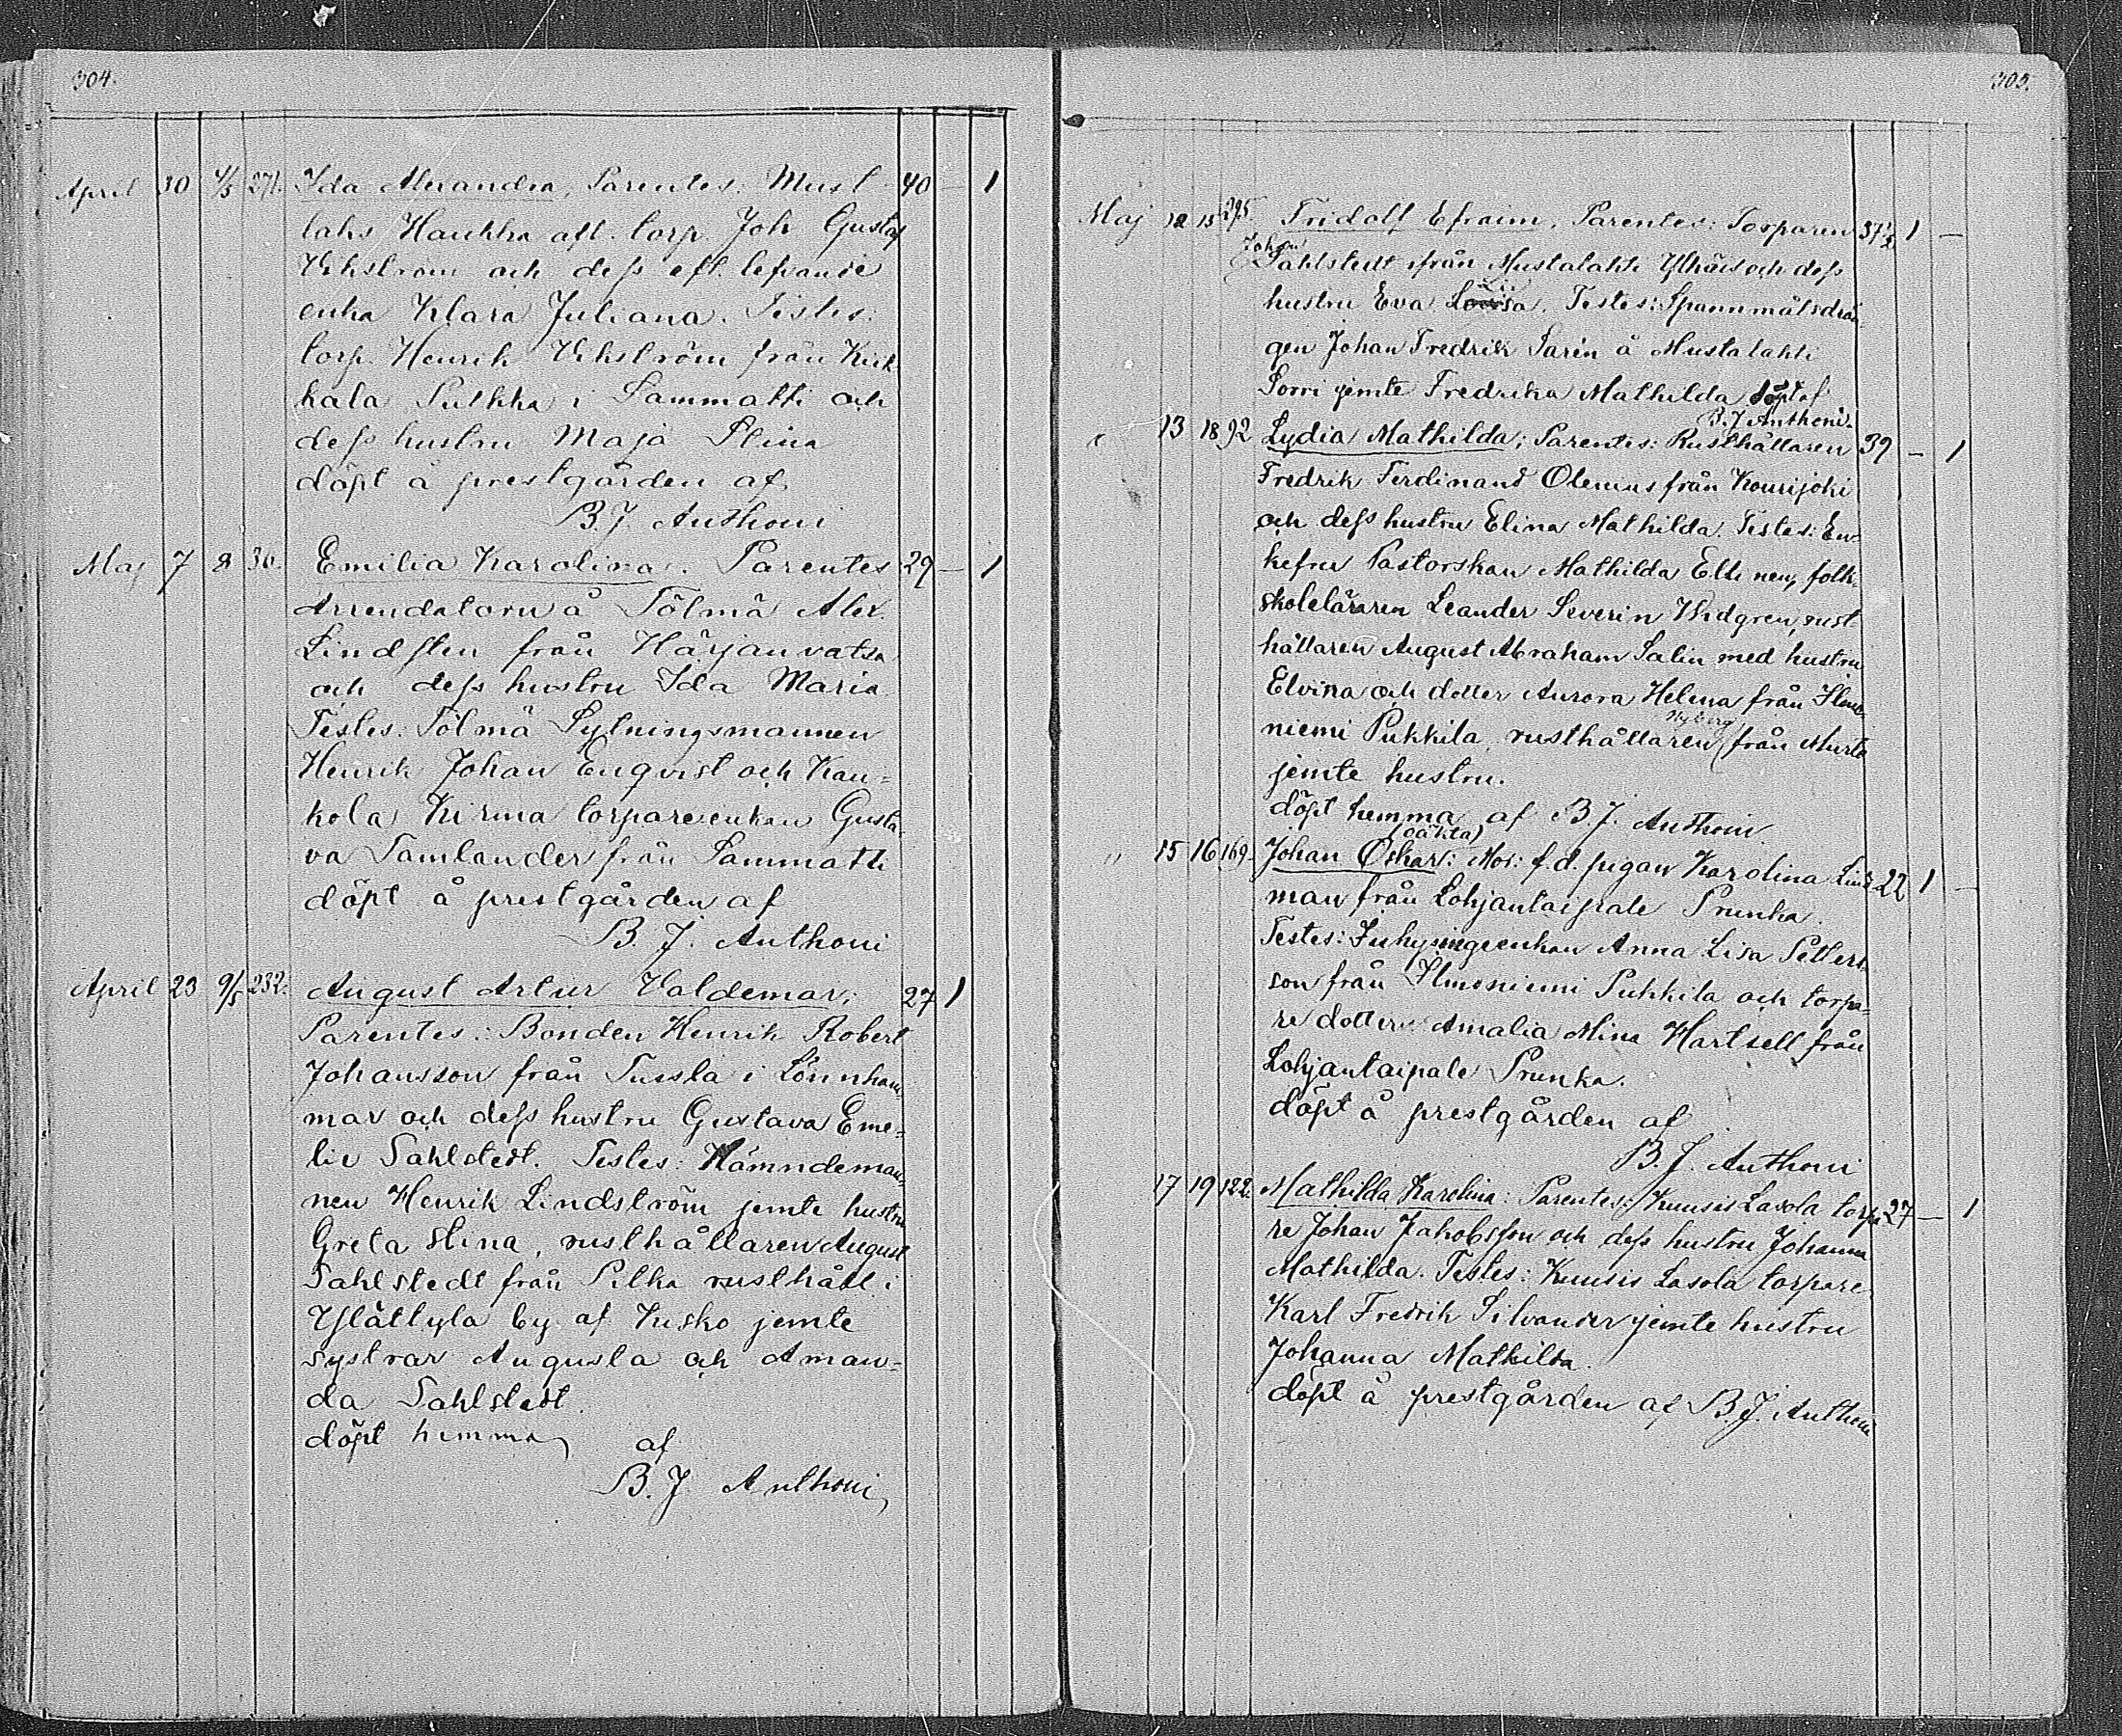 304.
April 30 4/5 271. Ida Alexandra, Parentes: Must- 40 — 1
lahs Haukka afl. torp. Joh Gustaf
Wikström och dess eft. lefvande
enka Klara Juliana. Testes:
torp. Henrik Wikström från Kirk-
kala Pukkka i Sammatti och
dess hustru Maja Stina
döpt å prestgården af
B. J Anthoni
Maj 7 8 30. Emilia Karolina. Parentes 29 — 1
Arrendatorn å Tölmä Alex.
Lindsten från Härjanvatsa
och dess hustru Ida Maria
Testes: Tölmä Sytningsmannen
Henrik Johan Enqvist och Kau-
kola Kirma torpareenkan Gusta-
va Samlander från Sammatti
döpt å prestgården af
B. J. Anthoni
April 23 9/5 232. August Artur Valdemar; 27 1
Parentes: Bonden Henrik Robert
Johansson från Tussla i Lönnham-
mar och dess hustru Gustava Eme-
lie Sahlstedt. Testes: Nämndeman-
nen Henrik Lindström jemte hustru
Greta Stina, rusthållaren August
Sahlstedt från Pilka rusthåll i
Ylättyla by af Kisko jemte
systrar Augusta och Aman-
da Sahlstedt
döpt hemma af
B. J. Anthoni
305.
Maj 12 15 295 Fridolf Efraim, Parentes: Torparen 37½ 1 —
Johan
Sahlstedt ifrån Mustalahti Ylhäis och dess
hustru Eva Lovisa. Testes: Spannmålsdrän-
gen Johan Fredrik Sarén å Mustalahti
Sorri jemte Fredrika Mathilda döpt af
B. J Anthoni.
13 18 92 Lydia Mathilda; Parentes: Rusthållaren 39 — 1
Fredrik Ferdinand Olenius från Kourijoki
och dess hustru Elina Mathilda. Testes: En-
kefru Pastorskan Mathilda, folk-
skoleläraren Leander Severin Widgren, rust-
hållaren August Abraham Salin med hustru
Elvina och dotter Aurora Helena från Ilmo-
Nyberg
niemi Pukkila, rusthållaren från Murto
jemte hustru.
döpt hemma af B J. Anthoni
(oäkta)
" 15 16 169. Johan Oskar: Mor: f.d. pigan Karolina Lind- 22 1 —
man från Lohjantaipale Prunka.
Testes: Inhysingeenkan Anna Lisa Petters-
son från Ilmoniemi Pukkila och torpa-
re dottern Amalia Mina Hartsell från
Lohjantaipale Prunka.
döpt å prestgården af
B. J. Anthoni
17 19 122. Mathilda Karolina: Parentes: Kuusis Lasola torpa- 27 — 1
re Johan Jakobsson och dess hustru Johanna
Mathilda. Testes: Kuusis Lasola torpare
Karl Fredrik Silvander jemte hustru
Johanna Mathilda.
döpt å prestgården af B. J. Anthoni